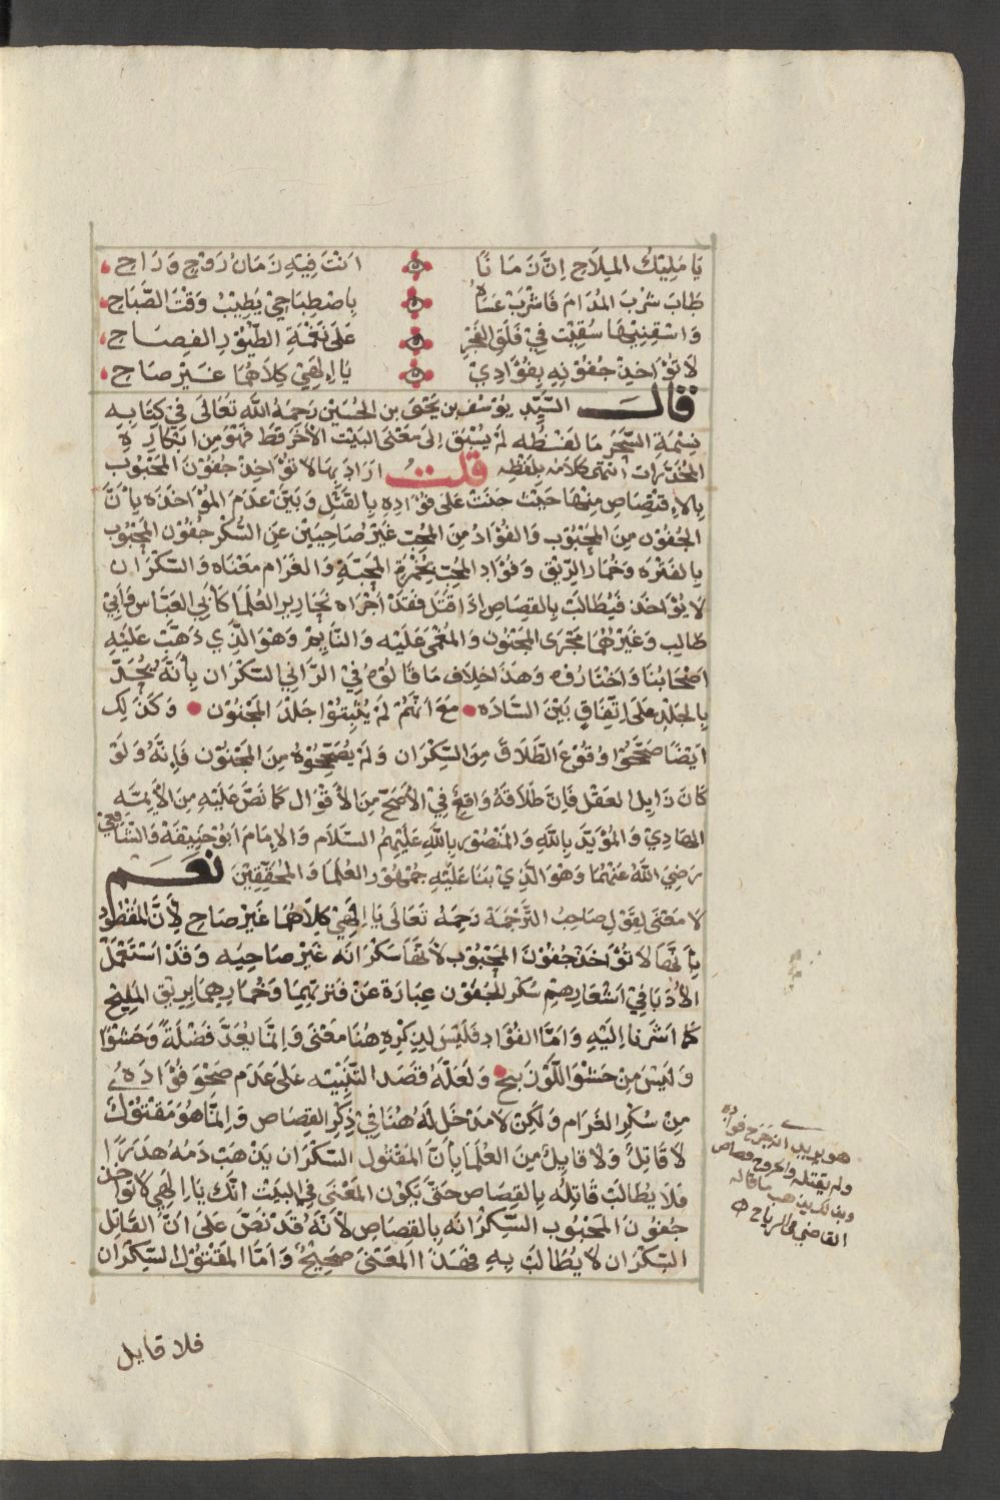 يَا مَلِيْكَ المِلَاحِ اِنَّ زَمَانًا ۞ اَنْتَ فِيْهِ زَمَانُ رَوْحٍ وَرَاحِ
طَابَ شُرْبَ المُدَامَ فَاشْرَبْ عَسَاهُ ۞ بِاصْطِبَاحِيْ يَطِيْبُ وَقْتَ الصَّبَاحِ
وَاسْقِنِيْهَا سُقِيْتَ فِيْ فَلَقِ الفَجْرِ ۞ عَلَى نَغْمَةِ الطُّيُوْرِ الفِصَاحِ
لَا تُوَاخِذْ جُفُوْنِهِ بِفُوَادِيْ ۞ يَا اِلٰهِيْ كِلَاهُمَا غَيْرُ صَاحِ
قَالَ السَّيِّد يوُسُف بن يَحْيَى بن الحُسَيْن رَحِمَهُ اللّه تَعَالَى فِيْ كِتَابِهِ
نِسْمَة السَّحَر مَا لَفْظُه لَمْ يُسْبَق اِلَى مَعْنَى البَيْت الاَخَر قَط فَهُوَ مِن ابْكَارِهِ
المُخَدَّرَات انْتَهَى كَلَامُه بِلَفْظِه قلت ارَادَ بِهَا لَا تُوَاخِذ جُفُوْنَ المَحْبُوْب
بِالاِقْتِصَاصِ مِنْهَا حَيْثُ جَنَتْ عَلَى فُوَادِهِ بِالقَتْلِ وَبَيَّنَ عَدَمَ المُوَاخَذَه بِاَنَّ
الجُفُوْن مِنَ المَحْبُوْب وَالفُوَادُ مِنَ المُحِبّ غَيْرُ صَاحِيَيْنِ عَنِ السُّكْر جُفُوْن المَحْبُوْب
بِالفَتْرَه وَخُمَار الرِّيْق وَفُوَاد المُحِبّ بِخَمْرَةِ المَحَبَّةِ وَالغَرَام مَعْنَاه وَالسَّكْرَان
لَا يُوَاخَذ فَيُطَالَبُ بِالقِصَاصِ اِذَا قَتَلَ فَقَدْ اَجْرَاه نَحَارِير العُلَمَا كَاَبِي العَبَّاس وَاَبِيْ
طَالِب وَغَيْرُهُمَا مَجْرَى المَجْنُوْن وَالمُغْمَى عَلَيْه وَالنَّايِمْ وَهُوَ الَّذِي ذَهَبَ عَلَيْهِ
اَصْحَابُنَا وَاخْتَارُوْه وَهَذَا خِلَاف مَا قَالُوْهُ فِيْ الزَّانِي السَّكْرَان بِاَنَّهُ يُحَدُّ
بِالجَلْدِ عَلَى اِتِّفَاقٍ بَيْنَ السَّادَه مَعَ اَنَّهُمْ لَمْ يُثْبِتُوْا جَلْدَ المَجْنُوْن وَكَذَلِك
اَيْضًا صَحَّحُوْا وُقُوْعَ الطَّلَاقَ مِنَ السَّكْرَان وَلَمْ يُصَحِّحُوْهُ مِنَ المَجْنُوْن فَاِنَّهُ وَلَوْ
كَانَ زَايِل العَقْل فَاِنَّ طَلَاقَهُ وَاقِعٌ فِيْ الاَصَحّ مِنَ الاَقْوَال كَمَا نَصَّ عَلَيْهِ مِنَ الاَيِمَّه
الهَادِيْ وَالمُوَيَّد بِاللَّهِ وَالمَنْصُوْر بِاللَّهِ عَلَيْهِمُ السَّلَام وَالاِمَام اَبُوْ حَنِيْفَة وَالشَّافِعِيْ
رَضِيَ اللَّهُ عَنْهُمَا وَهُوَ الَّذِيْ بَنَا عَلَيْهِ جُمْهُوْر العُلَمَا وَالمُحَقِّقِيْنَ نَعَمْ
لَا مَعْنَى لِقَوْلِ صَاحِبُ التَّرْجَمَة رَحِمَهُ تَعَالَى يَا اِلٰهِيْ كِلَاهُمَا غَيْرُ صَاحِ لِاَنَّ المَقْطُوْع
بِاَنَّهَا لَا تُوَاخَذ جُفُوْنَ المَحْبُوْب لِاَنَّهَا سَكْرَانَه غَيْرُ صَاحِيَه وَقَدْ اسْتَعْمَلْ
الاُدَبَا فِيْ اَشْعَارِهِمْ سُكْر الجُفُوْن عِبَارَة عَنْ فَتْرَتِهِمَا وَخُمَارِهِمَا بِرِيْق المَلِيْح
كَمَا اَشَرْنَا اِلَيْهِ وَاَمَّا الفُوَادِ فَلَيْسَ لِذِكْرِهِ هُنَا مَعْنَى وَاِنَّمَا يُعَدُّ فَضْلَةً وَحَشْوًا
وَلَيْسَ مِنْ حَشْوِ اللَّوْزَيْنَج وَلَعَلَّهُ قَصَدَ التَّنْبِيْه عَلَى عَدَم صَحْوِ فُوَادِهِ
مِنْ سُكْرِ الغَرَام وَلَكِنْ لَا مَدْخَل لَهُ هُنَا فِيْ ذِكْرِ القِصَاص وَاِنَّمَا هُوَ مَقْتُوْلٌ
لَا قَاتِلٌ وَلَا قَايِلٌ مِنَ العُلَمَا بِاَنَّ المَقْتُوْلَ السَّكْرَان يَذْهَبُ دَمُهُ هَدَرًا
فَلَا يُطَالَبُ قَاتِلُه بِالقِصَاص حَتَّى يَكُوْن المَعْنَى فِي البَيْت اَنَّكَ يَا اِلٰهِي لَا تُوَاخِذ
جُفُوْنَ المَحْبُوْب السَّكْرَانَه بِالقِصَاص لِاَنَّهُ قَدْ نَصَّ عَلَى اَنَّ القَاتِل
السَّكْرَان لَا يُطَالَبُ بِهِ فَهَذَا المَعْنَى صَحِيْحٌ وَاَمَّا المَقْتُوْل السَّكْرَان
هو يريد انه جرح فواده
ولم يقتله والجروح قصاص
وبذلك يذهب ما قاله
القاضي
فلا قايل